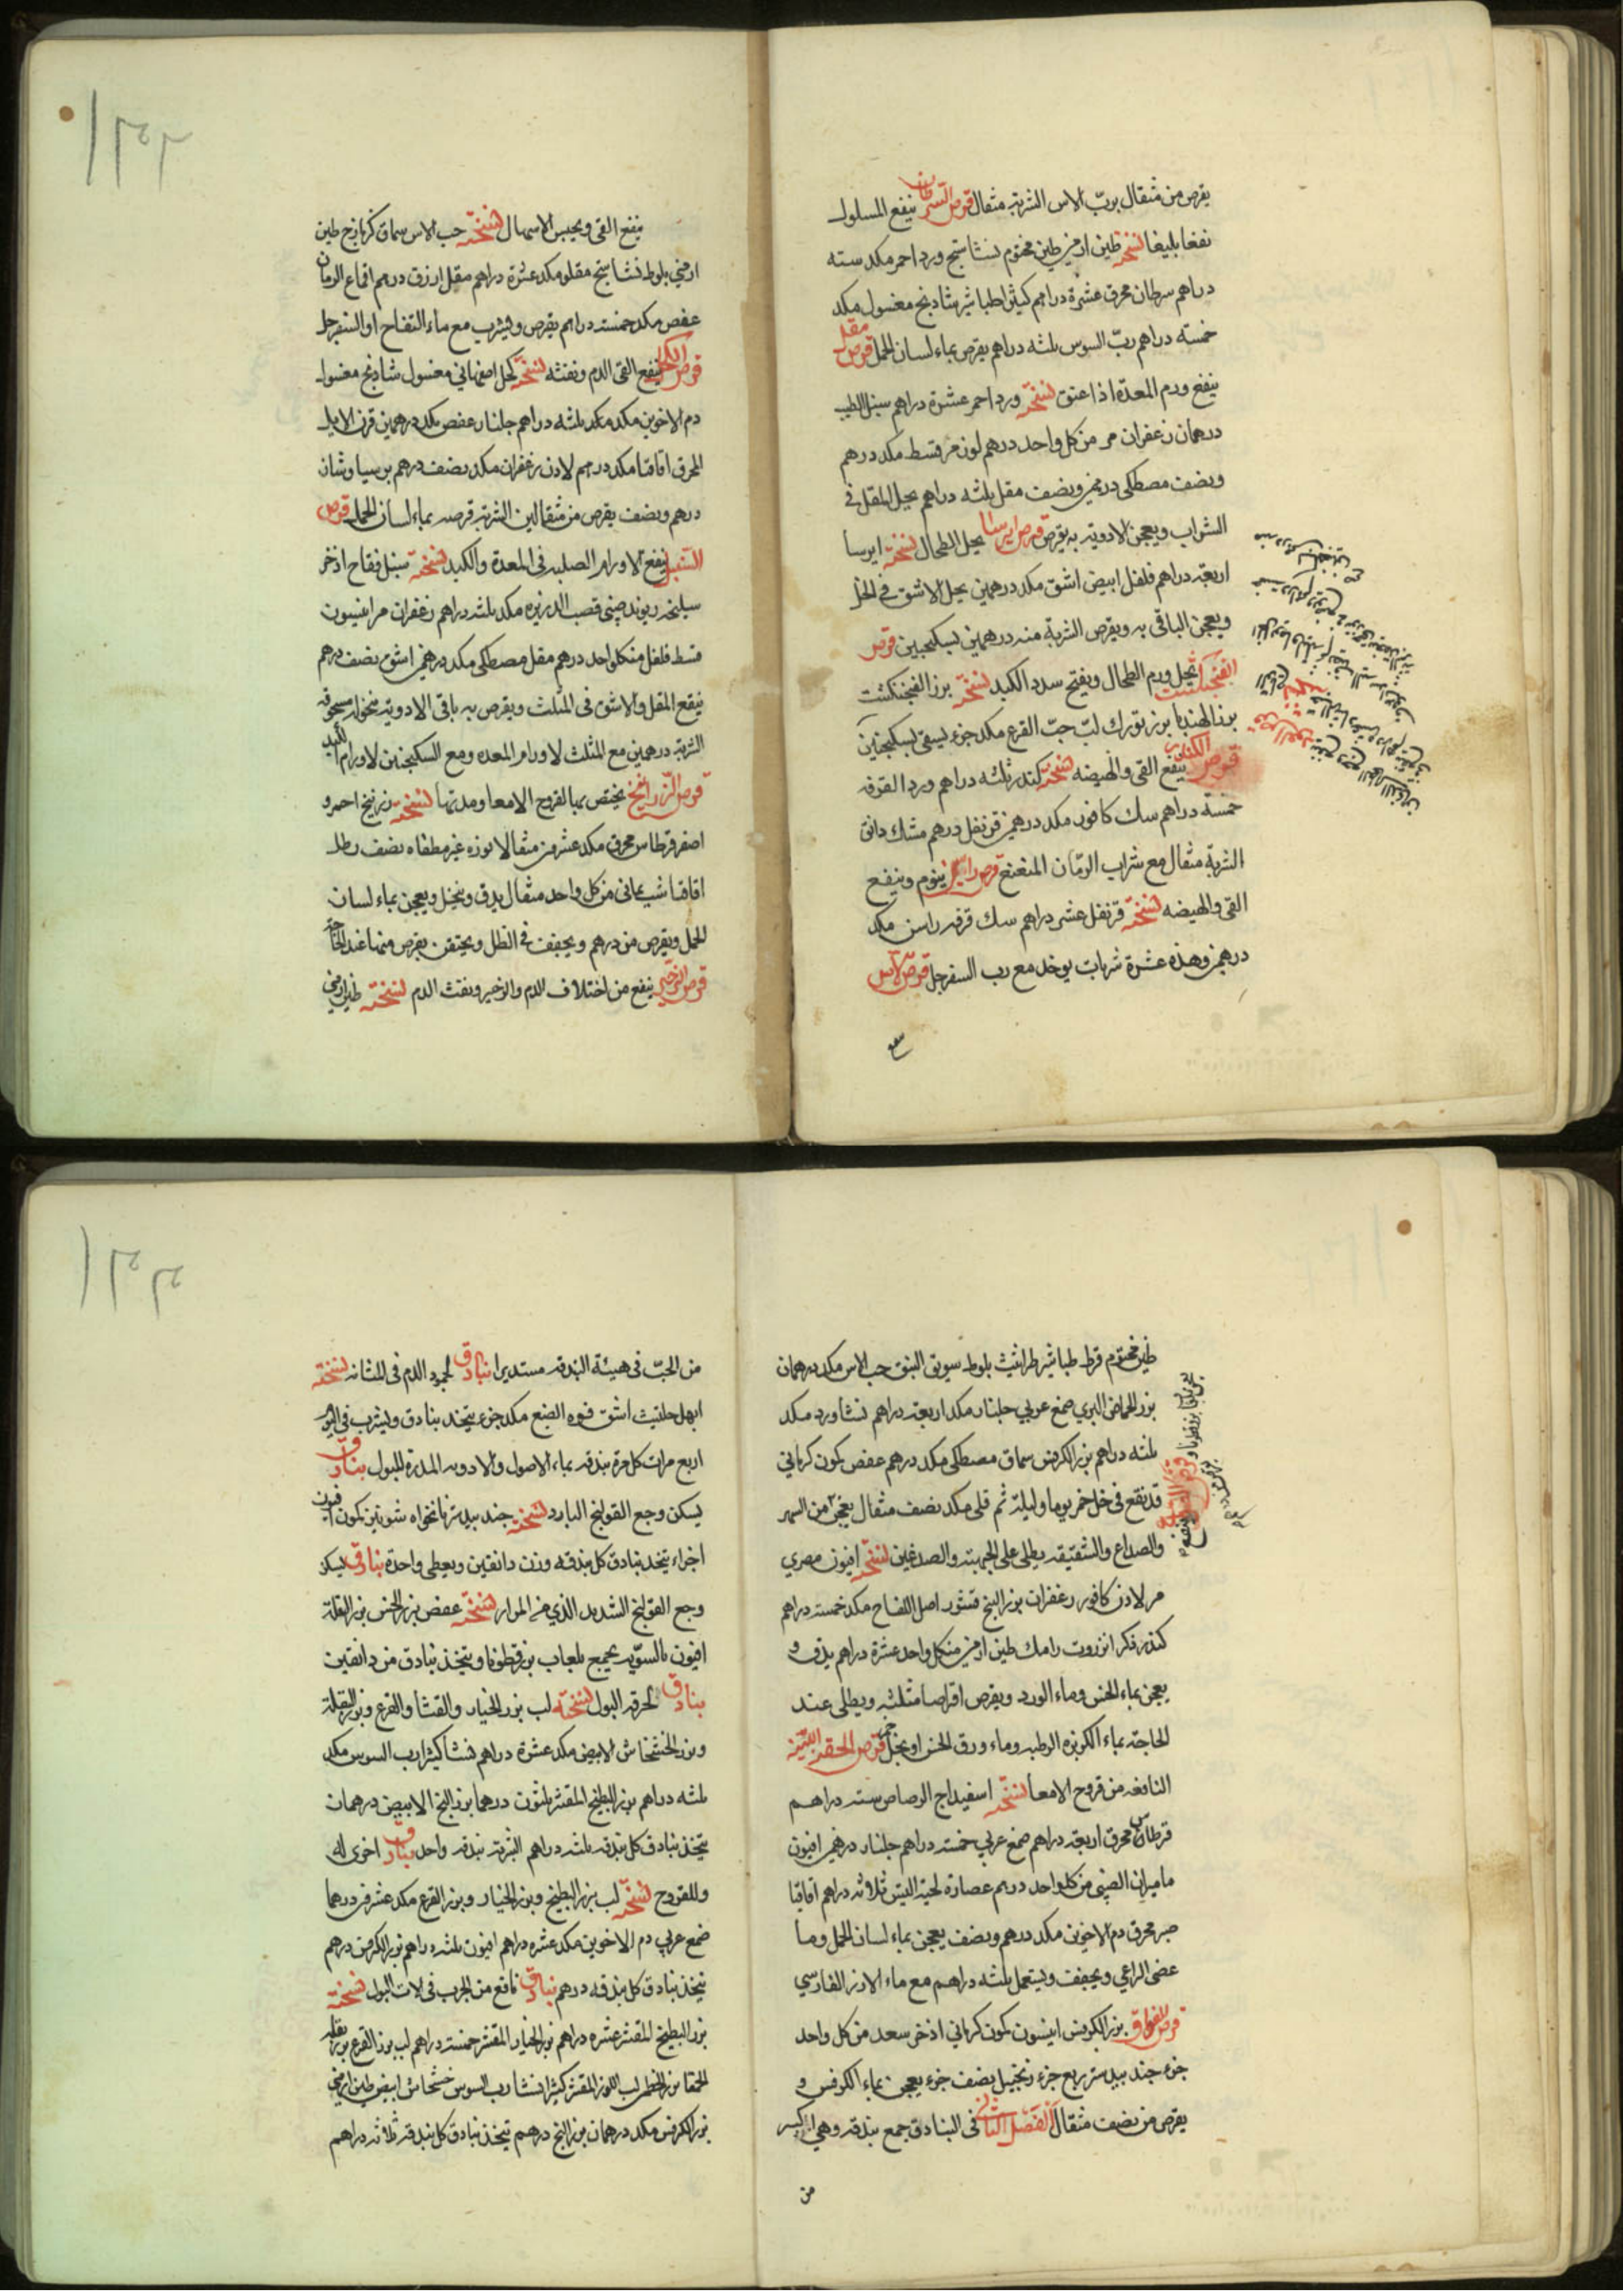 يقرص من مثقال بربّ الاس الشربة مثقال قرص السرطان ينفع المسلول
نفعا بليغا نسخته طين ارمني طين مختوم نشاستج ورد احمر مكد سته
دراهم سرطان محرق عشرة دراهم كثيرا طباشير شادنج مغسول مكد
خمسة دراهم ربّ السوس ثلثه دراهم يقرص بماء لسان الحمل قرص مقل
ينفع ورم المعدة اذا عتق نسخته ورد احمر عشرة دراهم سنبل الطيب
درهمان زعفران مر من كل واحد درهم لوز مر قسط مكد درهم
ونصف مصطكى درهمين ونصف مقل ثلثه دراهم يحل المقل في
الشراب ويعجن الادوية به يقرص قرص ايرسا يحل الطحال نسخته ايرسا
اربعة دراهم فلفل ابيض اشق مكد درهمين يحل الاشق في الخل
ويعجن الباقي به ويقرص الشربة منه درهمين بسكنجبين قرص
الفنجنكشت يحل ورم الطحال ويفتح سدد الكبد نسخته بزر الفنجنكشت
بزر الهندبا بزر لبّ حبّ القرع مكد جزء يسقى بسكنجبين
قرص الكندر ينفع القي والهيضه نسخته كندر ثلثه دراهم ورد القرفه
خمسة دراهم سك كافور مكد درهمين قرنفل درهم مسك دانق
الشربة مثقال مع شراب الرمّان المنعنع قرص راسن ينوم وينفع
القي والهيضه نسخته قرنفل عشر دراهم سك قرفه راسن مكد
درهمين وهذه عشرة شربات يوخذ مع رب السفرجل قرص الاس
ينفع القي ويحبس الاسهال نسخته حب الاس سماق كزمازج طين
ارمني بلوط نشاستج مقلو مكد عشرة دراهم مقل ازرق درهم اقماع الرمان
عفص مكد خمسته دراهم يقرص ويشرب مع ماء التفاح او السفرجل
قرص الكحل ينفع القي الدم ونفثه نسخته كحل اصفهاني مغسول شادنج مغسول
دم الاخوين مكد ثلثه دراهم جلنار عفص مكد درهمين قرن الايل
المحرق اقاقيا مكد درهم لادن زعفران مكد نصف درهم برسياوشان
درهم ونصف يقرص من مثقالين الشربة قرصه بماء لسان الحمل قرص
السنبل ينفع الاورام الصلبه في المعدة والكبد نسخته سنبل فقاح اذخر
سليخه ريوند صيني قصب الذريره مكد ثلثه دراهم زعفران مر انيسون
قسط فلفل من كل واحد درهم مقل مصطكى مكد درهمين اشق نصف درهم
ينقع المقل والاشق في المثلث ويقرص به باقي الادوية منخوله مسحوقه
الشربة درهمين مع المثلث لاورام المعده ومع السكنجبين لاورام الكبد
قرص الزرانيخ يختص بها القروح الامعا ومدتها نسخته زرنيخ احمر و
اصفر قرطاس محرق مكد عشرين مثقالا نوره غير مطفاه نصف رطل
اقاقيا شب يماني من كل واحد مثقال يدق وينخل ويعجن بماء لسان
الحمل ويقرص من درهم ويجفف في الظل ويحتقن بقرص منها عند الحاجة
قرص الزحير ينفع من اختلاف الدم والزحير ونفث الدم نسخته طين ارمني
طين مختوم قرط طباشير طراثيث بلوط سويق النبق حب الاس مكد درهمان
بزر الحماض البري صمغ عربي جلنار مكد اربعة دراهم نشا ورد مكد
ثلثه دراهم بزر الكرفس سماق مصطكى مكد درهم عفص كمون كرماني
قد نقع في خل خمر يوما وليلة ثم قلي مكد نصف مثقال يعجن من السهر
والصداع والشقيقه يطلى على الجبهة والصدغين نسخته افيون مصري
مر لادن كافور زعفران بزر البنج قشور اصل اللفاح مكد خمسة دراهم
كندر ذكر انزروت رامك طين ارمني من كل واحد عشرة دراهم يدق و
يعجن بماء الخس وماء الورد ويقرص اقراصا مثلثه ويطلى عند
الحاجة بماء الكزبره الرطبه وماء ورق الخس او بخل خمر قرص الحقن اللينة
النافعه من قروح الامعا نسخته اسفيداج الرصاص ستة دراهم
قرطاس محرق اربعة دراهم صمغ عربي خمسة دراهم جلنار درهمين افيون
ماميران الصيني من كل واحد درهم عصارة لحية التيس ثلاثه دراهم اقاقيا
صبر محرق دم الاخوين مكد درهم ونصف يعجن بماء لسان الحمل وما
عصى الراعي ويجفف ويستعمل ثلثه دراهم مع ماء الارز الفارسي
قرص الفواق بزر الكرفس انيسون كمون كرماني اذخر سعد من كل واحد
جزء جند بيدستر ربع جزء زنجبيل نصف جزء يعجن بماء الكرفس و
يقرص من نصف مثقال الفصل الثاني في البنادق جمع بندقه وهي اكبر
من
من الحبّ في هيئة البندقه مستديرا بنادق لجمود الدم في المثانه نسخته
ابهل حلتيث اشق فوه الصبغ مكد جزء يتخذ بنادق ويشرب في اليوم
اربع مرات كل مرة بندقه بماء الاصول والادويه المدرة للبول بنادق
يسكن وجع القولنج البارد نسخته جند بيدستر نانخواه شونيز كمون افيون
اجزاء يتخذ بنادق كل بندقه وزن دانقين ويعطى واحدة بنادق يسكن
وجع القولنج الشديد الذي من المرار نسخته عفص بزر الخس بزر البقلة
افيون بالسويّه يجمع بلعاب بزر قطونا ويتخذ بنادق من دانقين
بنادق لحرقه البول نسخته لب بزر الخيار والقثا والقرع وبزر البقلة
وبزر الخشخاش الابيض مكد عشرة دراهم نشا كثيرا رب السوس مكد
ثلثه دراهم بزر البطيخ المقشر ثلثون درهما بزر البنج الابيض درهمان
يتخذ بنادق كل بندقه ثلثه دراهم الشربة بندقه واحد بنادق اخرى له
وللقروح نسخته لب بزر البطيخ وبزر الخيار وبزر القرع مكد عشرين درهما
صمغ عربي دم الاخوين مكد عشره دراهم افيون ثلثه دراهم بزر الكرفس درهم
يتخذ بنادق كل بندقه درهم بنادق نافع من الجرب في الات البول نسخته
بزر البطيخ المقشر عشره دراهم بزر الخيار المقشر خمسة دراهم لب بزر القرع بزر بقله
الحمقا بزر الخطمي لب اللوز المقشر كثيرا نشا رب السوس خشخاش ابيض طين ارمني
بزر الكرفس مكد درهمان بزر البنج درهم يتخذ بنادق كل بندقه ثلاثه دراهم